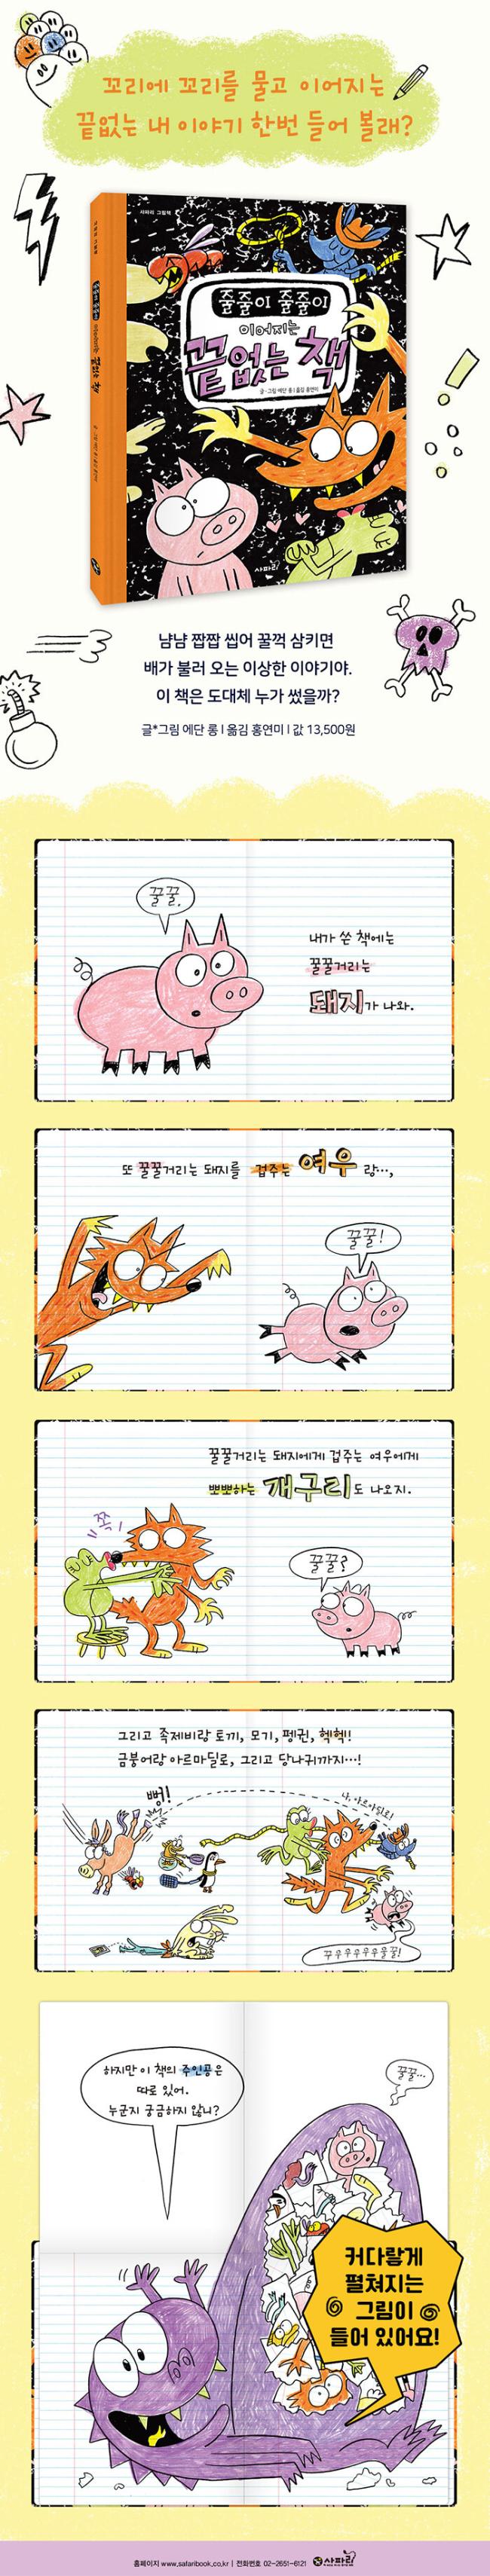 꼬리에 꼬리를 물고 이어지는
끝없는 내 이야기 한번 들어 볼래?
사파리 그림책
사파리 그림책
줄줄이 줄줄이
이어지는
끝없는 책
글·그림 에단 롱 | 옮김 홍연미
줄줄이 줄줄이 이어지는 끝없는 책
사파리
냠냠 짭짭 씹어 꿀꺽 삼키면
배가 불러 오는 이상한 이야기야.
이 책은 도대체 누가 썼을까?
글*그림 에단 롱 | 옮김 홍연미 | 값 13,500원
꿀꿀.
내가 쓴 책에는
꿀꿀거리는
돼지가 나와.
또 꿀꿀거리는 돼지를 겁주는 여우랑…,
꿀꿀!
꿀꿀거리는 돼지에게 겁주는 여우에게
뽀뽀하는 개구리도 나오지.
쪽!
꿀꿀?
그리고 족제비랑 토끼, 모기, 펭귄, 헉헉!
금붕어랑 아르마딜로, 그리고 당나귀까지…!
뻥!
나, 아르마딜로!
꾸우우우우우울꿀!
하지만 이 책의 주인공은
따로 있어.
누군지 궁금하지 않니?
꿀꿀…
커다랗게
펼쳐지는
그림이
들어 있어요!
홈페이지 www.safaribook.co.kr | 전화번호 02-2651-6121 사파리